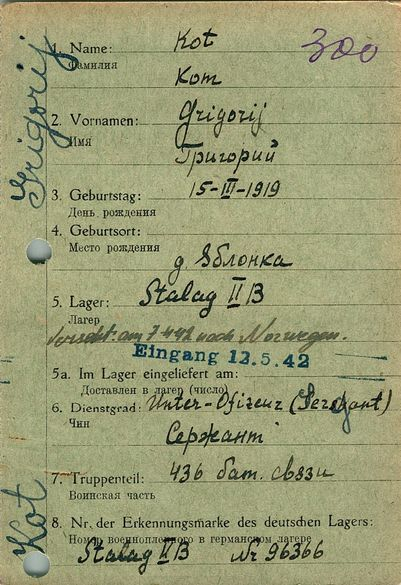 300
Grigorij
Kot
1. Name: Kot
Фамилия
Кот
2. Vornamen: Grigorij
Имя
Григорий
3. Geburtstag: 15-III-1919
День рождения
4. Geburtsort:
Место рождения
д. Яблонка
5. Lager: Stalag II B
Лагерь
am 7.4.42 nach Norwegen.
Eingang 12.5.42
5a. Im Lager eingeliefert am:
Доставлен в лагерь (число)
6. Dienstgrad: Unter-Ofizeur (Sergant)
Чин
Сержант
7. Truppenteil: 436 бат. связи
Воинская часть
8. Nr. der Erkennungsmarke des deutschen Lagers:
Номер военнопленного в германском лагере
Stalag II B Nr 96366